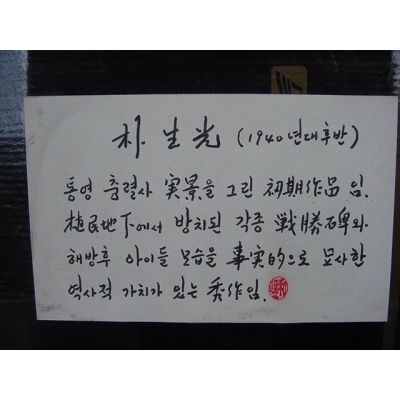 朴 生 光 (1940년대 후반)
통영 충렬사 実景을 그린 初期作品 임.
植民地下에서 방치된 각종 戦勝碑와
해방후 아이들 모습을 事実的으로 묘사한
역사적 가치가 있는 秀作임.